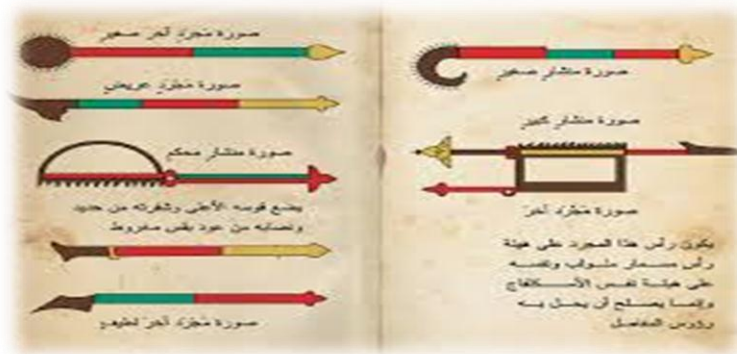 صورة منشار صغير
صورة منشار كبير
صورة مجرد آخر
يكون رأس هذا المجرد على هيئة
رأس مسمار ملولب ونفسه
على هيئة نفس الأسكلفاج
وإنما يصلح أن يحل به
رؤوس المفاصل
صورة مجرد آخر صغير
صورة مجرد عريض
صورة منشار محكم
يضع قوسه الأعلى وشفرته من حديد
ونصابه من عود بقس مخروط
صورة مجرد آخر لطيف